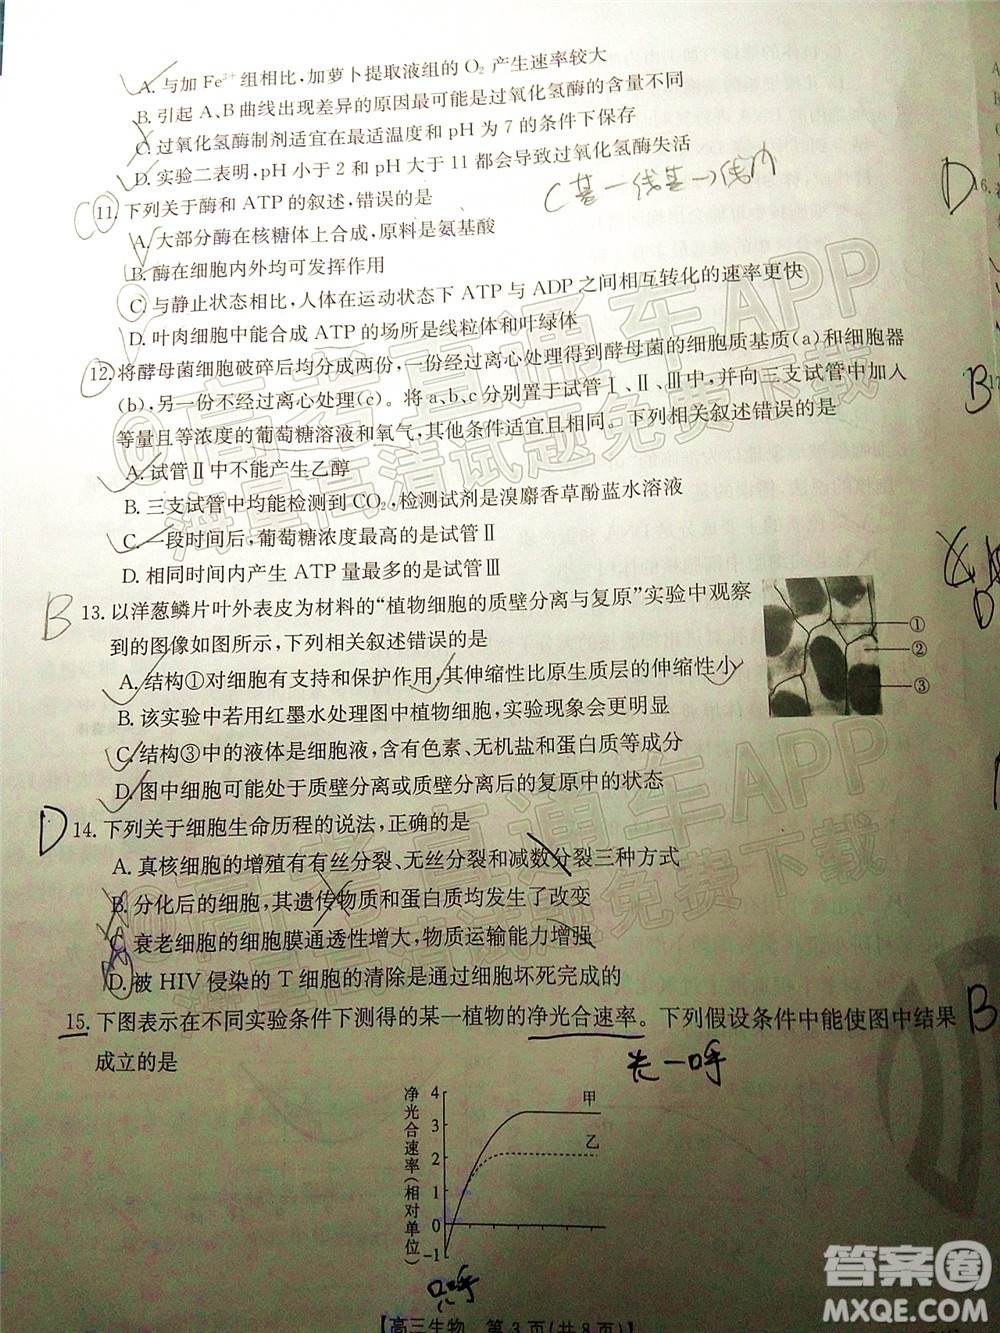 A. 与加 Fe³⁺ 组相比,加萝卜提取液组的 O₂ 产生速率较大
B. 引起 A、B 曲线出现差异的原因最可能是过氧化氢酶的含量不同
C. 过氧化氢酶制剂适宜在最适温度和 pH 为 7 的条件下保存
D. 实验二表明,pH 小于 2 和 pH 大于 11 都会导致过氧化氢酶失活
C
11. 下列关于酶和 ATP 的叙述,错误的是
A. 大部分酶在核糖体上合成,原料是氨基酸
B. 酶在细胞内外均可发挥作用
C. 与静止状态相比,人体在运动状态下 ATP 与 ADP 之间相互转化的速率更快
D. 叶肉细胞中能合成 ATP 的场所是线粒体和叶绿体
12. 将酵母菌细胞破碎后均分成两份,一份经过离心处理得到酵母菌的细胞质基质(a)和细胞器
(b),另一份不经过离心处理(c)。将 a、b、c 分别置于试管Ⅰ、Ⅱ、Ⅲ中,并向三支试管中加入
等量且等浓度的葡萄糖溶液和氧气,其他条件适宜且相同。下列相关叙述错误的是
A. 试管Ⅱ中不能产生乙醇
B. 三支试管中均能检测到 CO₂,检测试剂是溴麝香草酚蓝水溶液
C. 一段时间后,葡萄糖浓度最高的是试管Ⅱ
D. 相同时间内产生 ATP 量最多的是试管Ⅲ
B
13. 以洋葱鳞片叶外表皮为材料的“植物细胞的质壁分离与复原”实验中观察
到的图像如图所示,下列相关叙述错误的是
A. 结构①对细胞有支持和保护作用,其伸缩性比原生质层的伸缩性小
B. 该实验中若用红墨水处理图中植物细胞,实验现象会更明显
C. 结构③中的液体是细胞液,含有色素、无机盐和蛋白质等成分
D. 图中细胞可能处于质壁分离或质壁分离后的复原中的状态
①
②
③
D
14. 下列关于细胞生命历程的说法,正确的是
A. 真核细胞的增殖有有丝分裂、无丝分裂和减数分裂三种方式
B. 分化后的细胞,其遗传物质和蛋白质均发生了改变
C. 衰老细胞的细胞膜通透性增大,物质运输能力增强
D. 被 HIV 侵染的 T 细胞的清除是通过细胞坏死完成的
15. 下图表示在不同实验条件下测得的某一植物的净光合速率。下列假设条件中能使图中结果
成立的是
光一呼
净光合速率(相对单位)
4
3
2
1
0
-1
甲
乙
只呼
【高三生物 第 3 页(共 8 页)】
D
16.
B
B
@高考直通车APP
海量高清试题免费下载
@高考直通车APP
海量高清试题免费下载
答案圈
MXQE.COM